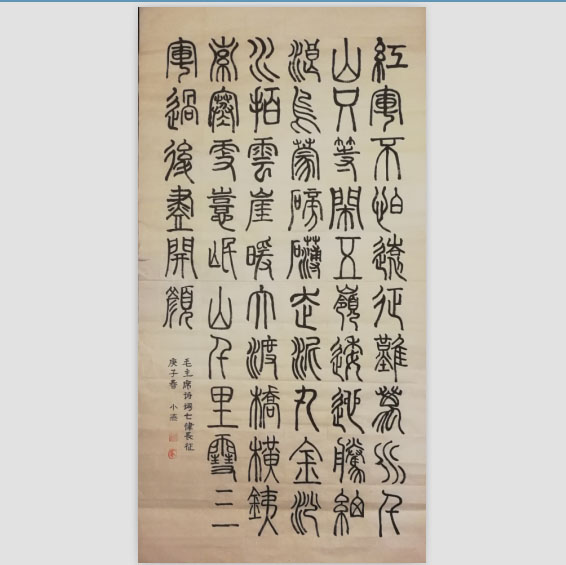 紅軍不怕遠征難萬水千
山只等閑五嶺逶迤騰細
浪烏蒙磅礴走泥丸金沙
水拍雲崖暖大渡橋橫鐵
索寒更喜岷山千里雪三
軍過後盡開顏
毛主席诗词七律長征
庚子春 小燕